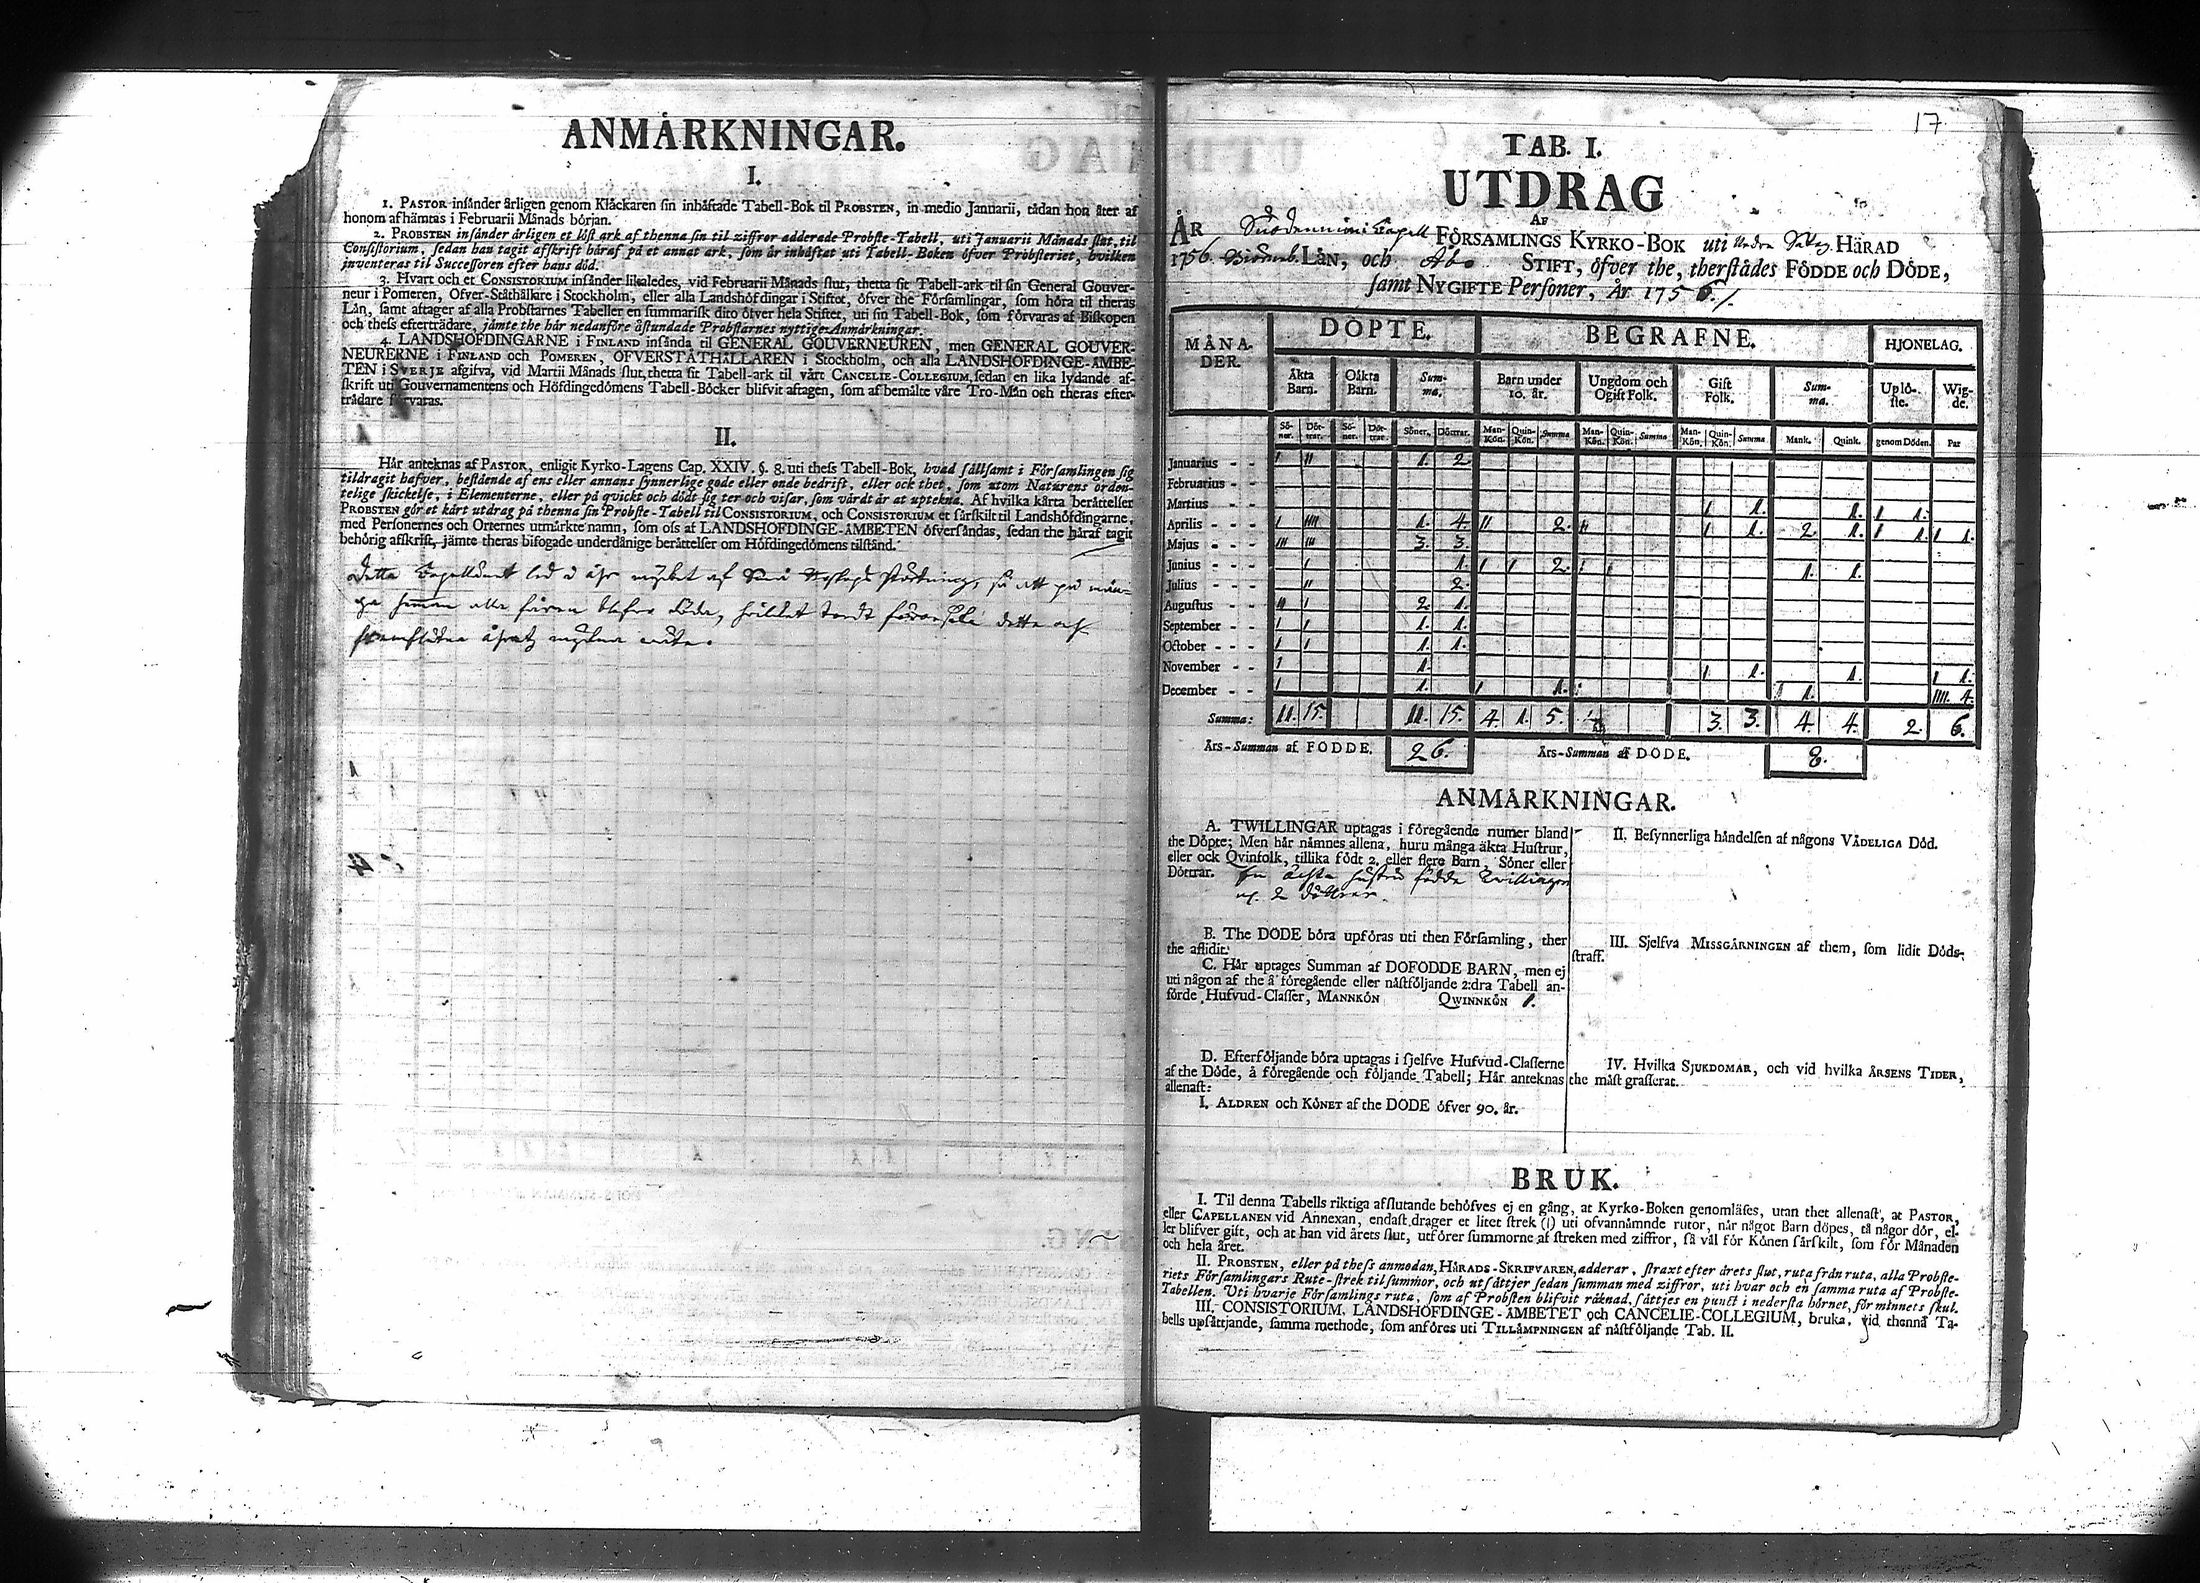 ANMÅRKNINGAR.
I.
1. PASTOR insånder årligen genom Klåckaren sin inhåftade Tabell-Bok til PROBSTEN, in medio Januarii, tådan hon åter af
honom afhåmtas i Februarii Månads början.
2. PROBSTEN insånder årligen et löst ark af thenna sin til ziffror adderade Probste-Tabell, uti Januarii Månads slut, til
Consistorium, sedan han tagit afskrift håraf på et annat ark, som år inhåftat uti Tabell-Boken öfver Probsteriet, hvilken
inventeras til Successoren efter hans död.
3. Hvart och et CONSISTORIUM insånder likaledes, vid Februarii Månads slut, thetta sit Tabell-ark til sin General Gouver-
neur i Pomeren, Öfver-Ståthållare i Stockholm, eller alla Landshöfdingar i Stiftet, öfver the Församlingar, som höra til theras
Lån, samt aftager af alla Probstarnes Tabeller en summarisk dito öfver hela Stiftet, uti sin Tabell-Bok, som förvaras af Biskopen
och thess eftertrådare, jåmte the hår nedanföre åstundade Probstarnes nyttige Anmårkningar.
4. LANDSHÖFDINGARNE i FINLAND insånda til GENERAL GOUVERNEUREN, men GENERAL GOUVER-
NEURERNE i FINLAND och POMEREN, ÖFVERSTÅTHÅLLAREN i Stockholm, och alla LANDSHÖFDINGE-ÅMBE-
TEN i SVERJE afgifva, vid Martii Månads slut, thetta sit Tabell-ark til vårt CANCELIE-COLLEGIUM, sedan en lika lydande af-
skrift uti Gouvernamentens och Höfdingedömens Tabell-Böcker blifvit aftagen, som af bemålte våre Tro-Mån och theras efter-
trådare förvaras.
II.
Hår anteknas af PASTOR, enligit Kyrko-Lagens Cap. XXIV. §. 8. uti thess Tabell-Bok, hvad sållsamt i Församlingen sig
tildragit hafver, bestående af ens eller annans synnerlige gode eller onde bedrift, eller ock thet, som utom Naturens orden-
telige skickelse, i Elementerne, eller på qvickt och dödt sig ter och visar, som vårdt år at uptekna. Af hvilka kårta beråttelser
PROBSTEN gör et kårt utdrag på thenna sin Probste-Tabell til CONSISTORIUM, och CONSISTORIUM et sårskilt til Landshöfdingarne,
med Personernes och Orternes utmårkte namn, som oss af LANDSHÖFDINGE-ÅMBETEN öfversåndas, sedan the håraf tagit
behörig afskrift, jåmte theras bifogade underdånige beråttelser om Höfdingedömens tilstånd.
17
TAB. I.
UTDRAG
AF
ÅR Capell FÖRSAMLINGS KYRKO-BOK uti HÄRAD
1756. LÅN, och Åbo STIFT, öfver the, therstådes FÖDDE och DÖDE,
samt NYGIFTE Personer, År 1756.
MÅNADER. DÖPTE. BEGRAFNE. HJONELAG.
Åkta Barn. Oåkta Barn. Summa. Barn under 10. år. Ungdom och Ogift Folk. Gift Folk. Summa. Uplöste. Wigde.
Söner. Döttrar. Söner. Döttrar. Söner. Döttrar. Mankön. Quinkön. Summa Mankön. Quinkön. Summa Mankön. Quinkön. Summa Mank. Quink. genom Döden. Par
Januarius - - I II 1. 2.
Februarius - -
Martius - - I 1. 1. I 1.
Aprilis - - - I IIII 1. 4. II 2. II I 1. 2. 1. I 1. I 1.
Majus - - - III III 3. 3.
Junius - - - I 1. I I 2. I I 1. 1.
Julius - - - II 2.
Augustus - - II I 2. 1.
September - - I I 1. 1.
October - - - I I 1. 1.
November - - I 1. I 1. 1. I 1.
December - - I 1. I 1. I 1. IIII. 4.
Summa: 11. 15. 11. 15. 4. 1. 5. 3. 3. 4. 4. 2. 6.
Års-Summan af FÖDDE. 26. Års-Summan af DÖDE. 8.
ANMÅRKNINGAR.
A. TWILLINGAR uptagas i föregående numer bland
the Döpte; Men hår nåmnes allena, huru många åkta Hustrur,
eller ock Qvinfolk, tillika födt 2. eller flere Barn, Söner eller
Döttrar. En ächta hustru födde twillingar
2 döttrar.
B. The DÖDE böra upföras uti then Församling, ther
the aflidit.
C. Hår uptages Summan af DÖFÖDDE BARN, men ej
uti någon af the å föregående eller nåstföljande 2:dra Tabell an-
förde Hufvud-Classer, MANNKÖN QWINNKÖN 1.
D. Efterföljande böra uptagas i sjelfve Hufvud-Classerne
af the Döde, å föregående och följande Tabell; Hår anteknas
allenast:
I. ÅLDREN och KÖNET af the DÖDE öfver 90. år.
II. Besynnerliga håndelsen af någons VÅDELIGA Död.
III. Sjelfva MISSGÅRNINGEN af them, som lidit Döds-
straff.
IV. Hvilka SJUKDOMAR, och vid hvilka ÅRSENS TIDER,
the måst grasserat.
BRUK.
I. Til denna Tabells riktiga afslutande behöfves ej en gång, at Kyrko-Boken genomlåses, utan thet allenast, at PASTOR,
eller CAPELLANEN vid Annexan, endast drager et litet strek (I) uti ofvannåmnde rutor, når något Barn döpes, tå någor dör, el-
ler blifver gift, och at han vid årets slut, utförer summorne af streken med ziffror, så vål för Könen sårskilt, som för Månaden
och hela året.
II. PROBSTEN, eller på thess anmodan, HÅRADS-SKRIFVAREN, adderar, straxt efter årets slut, ruta från ruta, alla Probste-
riets Församlingars Rute-strek til summor, och utsåttjer sedan summan med ziffror, uti hvar och en samma ruta af Probste-
Tabellen. Uti hvarje Församlings ruta, som af Probsten blifvit råknad, såttjes en punct i nedersta hörnet, för minnets skul.
III. CONSISTORIUM, LANDSHÖFDINGE-ÅMBETET och CANCELIE-COLLEGIUM, bruka, vid thenna Ta-
bells upsåttjande, samma methode, som anföres uti TILLÅMPNINGEN af nåstföljande Tab. II.